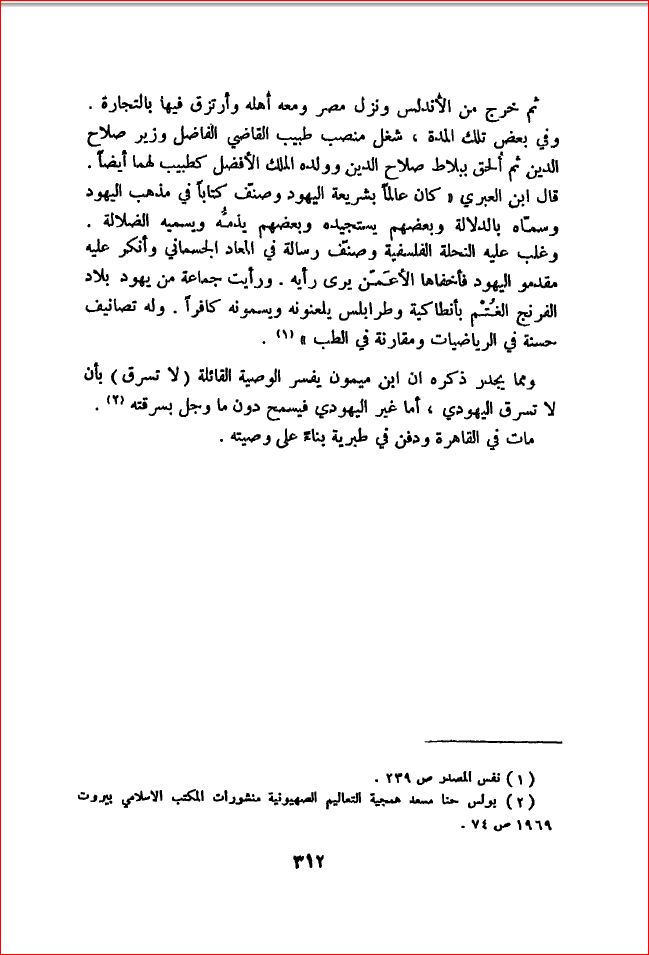 ثم خرج من الأندلس ونزل مصر ومعه أهله وأرتزق فيها بالتجارة .
وفي بعض تلك المدة ، شغل منصب طبيب القاضي الفاضل وزير صلاح
الدين ثم أُلحق ببلاط صلاح الدين وولده الملك الأفضل كطبيب لهما أيضاً .
قال ابن العبري « كان عالماً بشريعة اليهود وصنّف كتاباً في مذهب اليهود
وسمّاه بالدلالة وبعضهم يستجيده وبعضهم يذمُّه ويسميه الضلالة .
وغلب عليه النحلة الفلسفية وصنّف رسالة في المعاد الجسماني وأنكر عليه
مقدمو اليهود فأخفاها الأعَمّن يرى رأيه . ورأيت جماعة من يهود بلاد
الفرنج الغُتْم بأنطاكية وطرابلس يلعنونه ويسمونه كافراً . وله تصانيف
حسنة في الرياضيات ومقارنة في الطب » (١) .
ومما يجدر ذكره ان ابن ميمون يفسر الوصية القائلة ( لا تسرق ) بأن
لا تسرق اليهودي ، أما غير اليهودي فيسمح دون ما وجل بسرقته (٢) .
مات في القاهرة ودفن في طبرية بناءً على وصيته .
(١) نفس المصدر ص ٢٣٩ .
(٢) بولس حنا مسعد همجية التعاليم الصهيونية منشورات المكتب الاسلامي بيروت
١٩٦٩ ص ٧٤ .
٣١٢